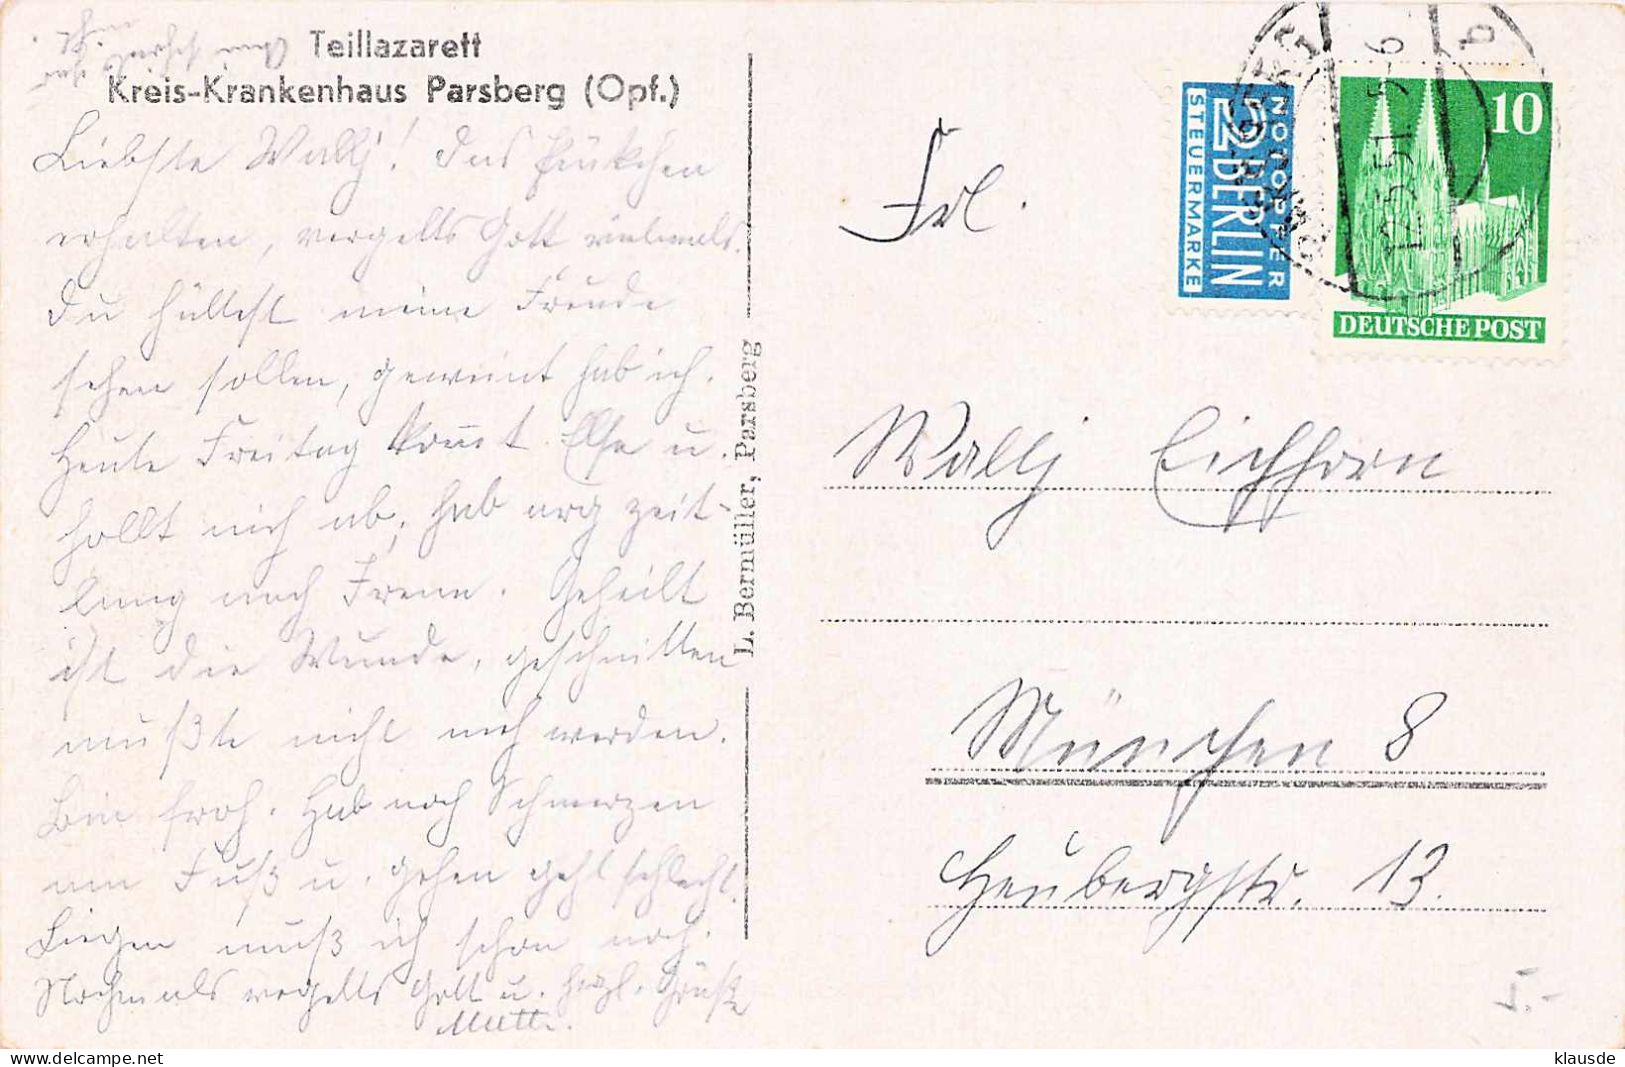 Teillazarett
Kreis-Krankenhaus Parsberg (Opf.)
Liebste Wally! Das Päckchen
erhalten, vergelts Gott vielmals.
Du hättest meine Freude
sehen sollen, geweint hab ich.
Heute Freitag kommt Else u.
hollt mich ab, hab arg Zeit-
lang nach Irene. Geheilt
ist die Wunde, geschnitten
mußte nicht mehr werden.
Bin froh. Hab noch Schmerzen
am Fuß u. gehen geht schlecht.
Liegen muß ich schon noch.
Nochmals vergelts Gott u. herzl. Grüße
Mutti.
L. Bermüller, Parsberg
NOTOPFER
2 BERLIN
STEUERMARKE
10
DEUTSCHE POST
12.5.51.5-6
b
Frl.
Wally Eichhorn
München 8
Heubergstr. 13.
5.-
klausde